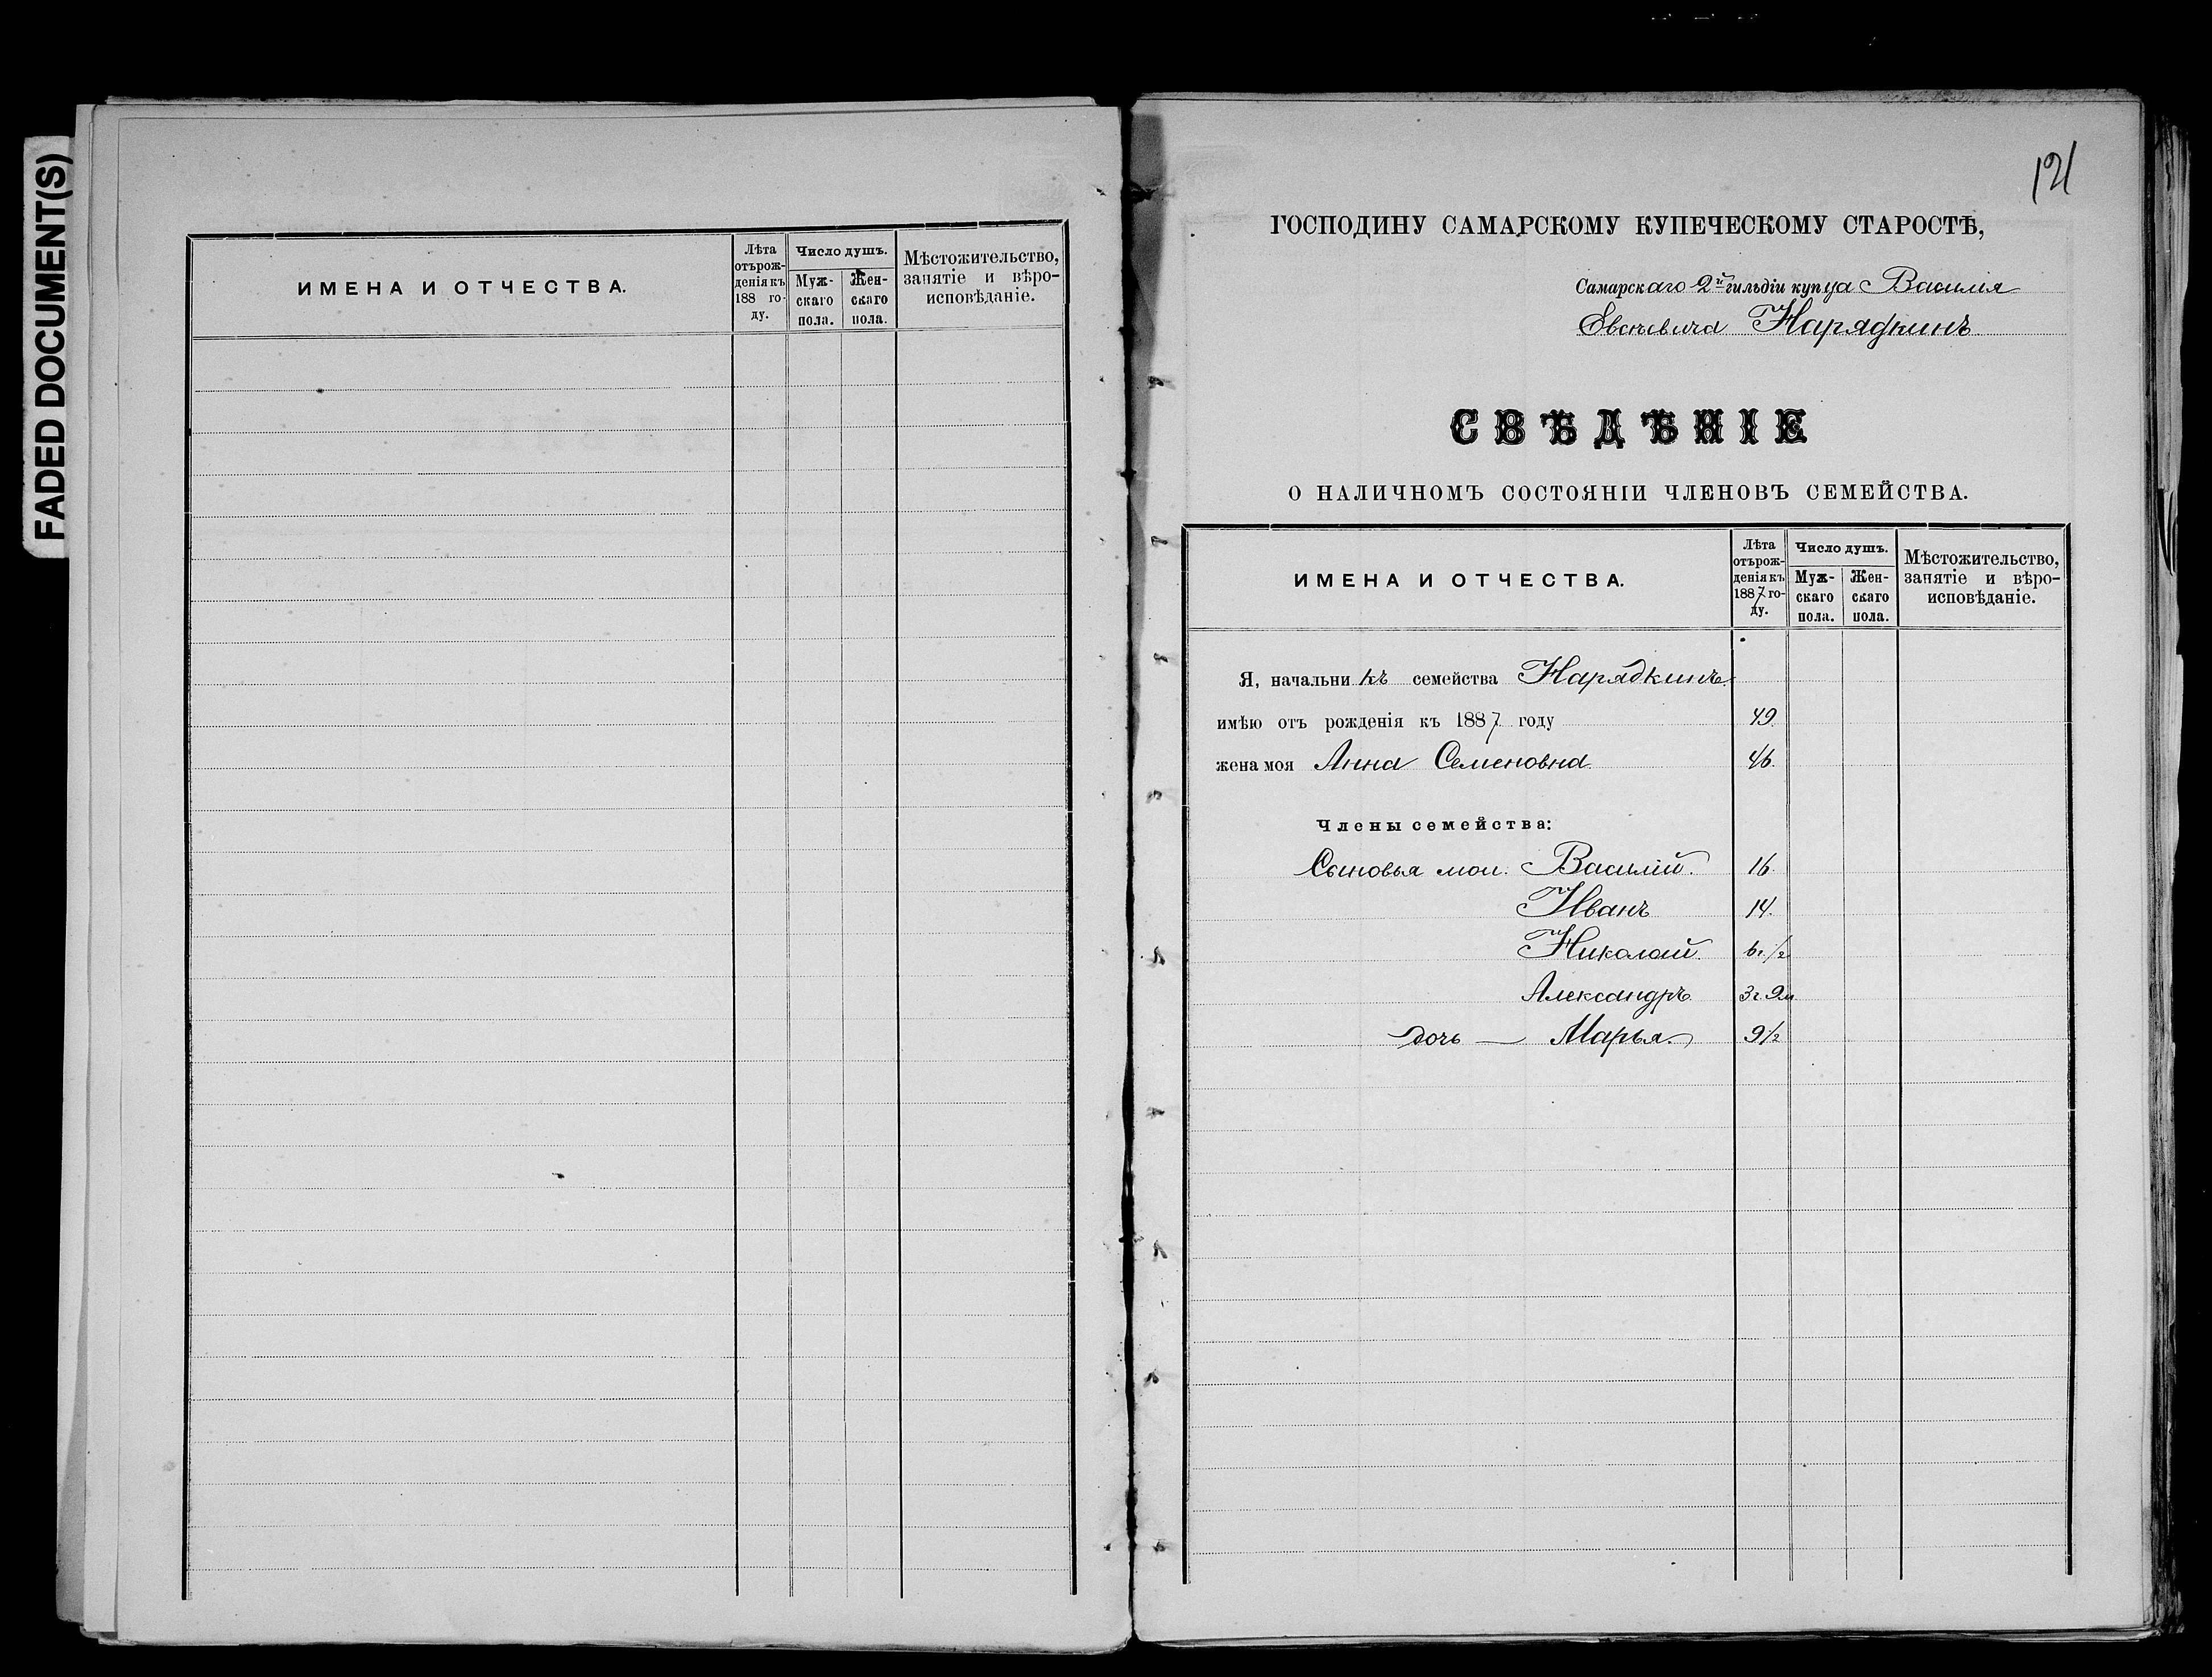 FADED DOCUMENT(S)
ИМЕНА И ОТЧЕСТВА.
Лѣта
отърож-
денія къ
188 го-
ду.
Число душъ.
Муж-
скаго
пола.
Жен-
скаго
пола.
Мѣстожительство,
занятіе и вѣро-
исповѣданіе.
121
ГОСПОДИНУ САМАРСКОМУ КУПЕЧЕСКОМУ СТАРОСТѢ,
Самарскаго 2й гильдіи купца Василия
Нарядкинъ
СВѢДѢНІЕ
О НАЛИЧНОМЪ СОСТОЯНІИ ЧЛЕНОВЪ СЕМЕЙСТВА.
ИМЕНА И ОТЧЕСТВА.
Лѣта
отърож-
денія къ
1887 го-
ду.
Число душъ.
Муж-
скаго
пола.
Жен-
скаго
пола.
Мѣстожительство,
занятіе и вѣро-
исповѣданіе.
Я, начальникъ семейства Нарядкинъ.
имѣю отъ рожденія къ 1887 году 49.
жена моя Анна Семеновна. 46.
Члены семейства:
Сыновья мои. Василій. 16.
Иванъ 14.
Николай. 6г 1/2
Александръ 3г. 9м
дочь — Марья. 9 1/2